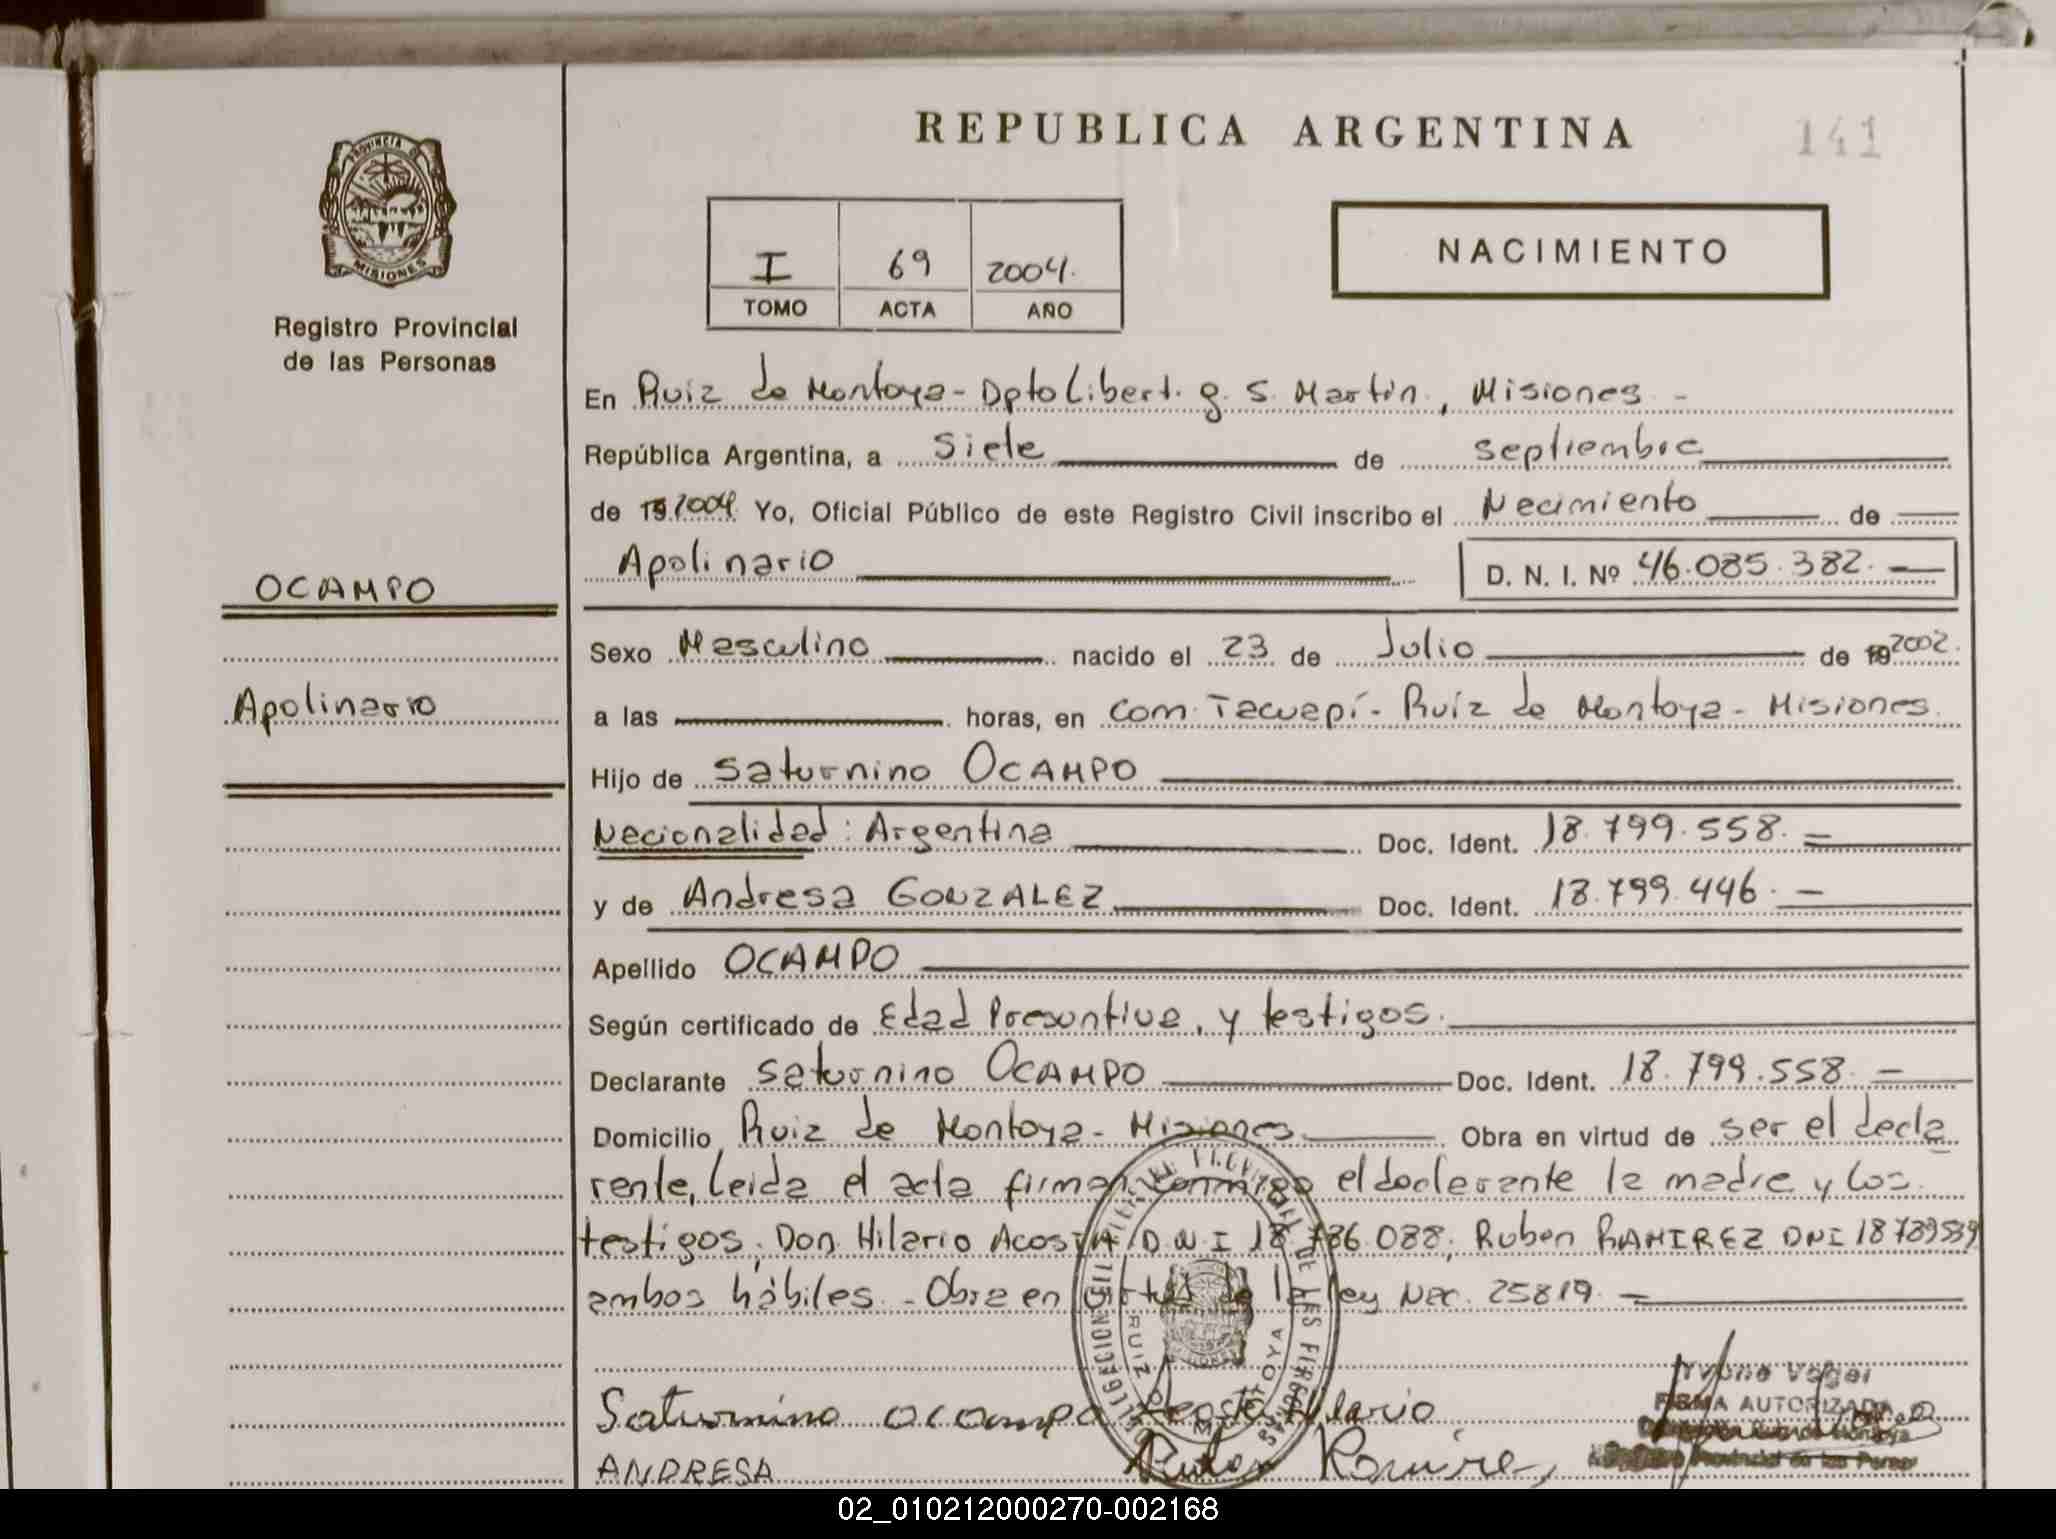 REPUBLICA ARGENTINA
141
PROVINCIA DE
MISIONES
Registro Provincial
de las Personas
I 69 2004.
TOMO ACTA AÑO
NACIMIENTO
En Ruiz de Montoya - Dpto Libert. g. S. Martín, Misiones -
República Argentina, a Siete de septiembre
de 19 2004 Yo, Oficial Público de este Registro Civil inscribo el Nacimiento de
Apolinario D. N. I. Nº 46.085.382. —
OCAMPO
Sexo Masculino nacido el 23 de Julio de 19 2002.
Apolinario
a las horas, en Com. Tacuapí - Ruíz de Montoya - Misiones.
Hijo de Saturnino OCAMPO
Nacionalidad: Argentina Doc. Ident. 18.799.558. =
y de Andresa GONZALEZ Doc. Ident. 18.799.446. —
Apellido OCAMPO
Según certificado de Edad Presuntiva, y testigos.
Declarante Saturnino OCAMPO Doc. Ident. 18.799.558 —
Domicilio Ruiz de Montoya - Misiones Obra en virtud de ser el decla
rante, leida el acta firman conmigo el declarante la madre y los
testigos, Don Hilario ACOSTA D.N.I 18.786.088, Ruben RAMIREZ DNI 18789589
ambos hábiles. - Obra en virtud de la ley Nac. 25819. —
RUIZ DE MONTOYA
Saturnino ocampo Acosta Hilario
FIRMA AUTORIZADA
ANDRESA Ruben Ramire
Registro Provincial de las Personas
02_010212000270-002168